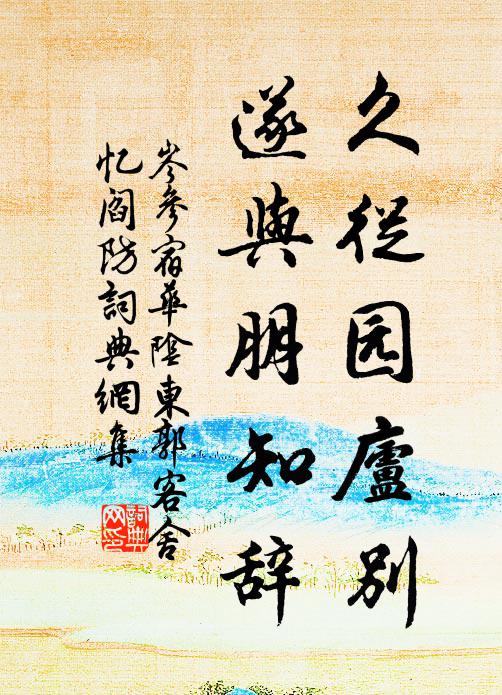 久從园廬別
遂與朋知辞
岑參宿華陰東郭客舍
忆閻防詞典網集